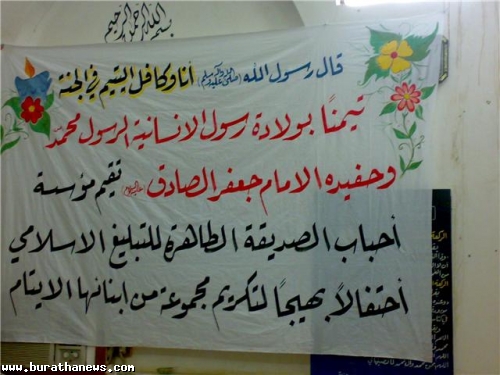 بسم الله الرحمن الرحيم
قال رسول الله (صلى الله عليه وآله وسلم) أنا وكافل اليتيم في الجنة
تيمنًا بولادة رسول الانسانية الرسول محمد
وحفيده الامام جعفر الصادق (عليه السلام) تقيم مؤسسة
أحباب الصديقة الطاهرة للتبليغ الاسلامي
أحتفالاً بهيجًا لتكريم مجموعة من ابنائها الايتام
www.burathanews.com